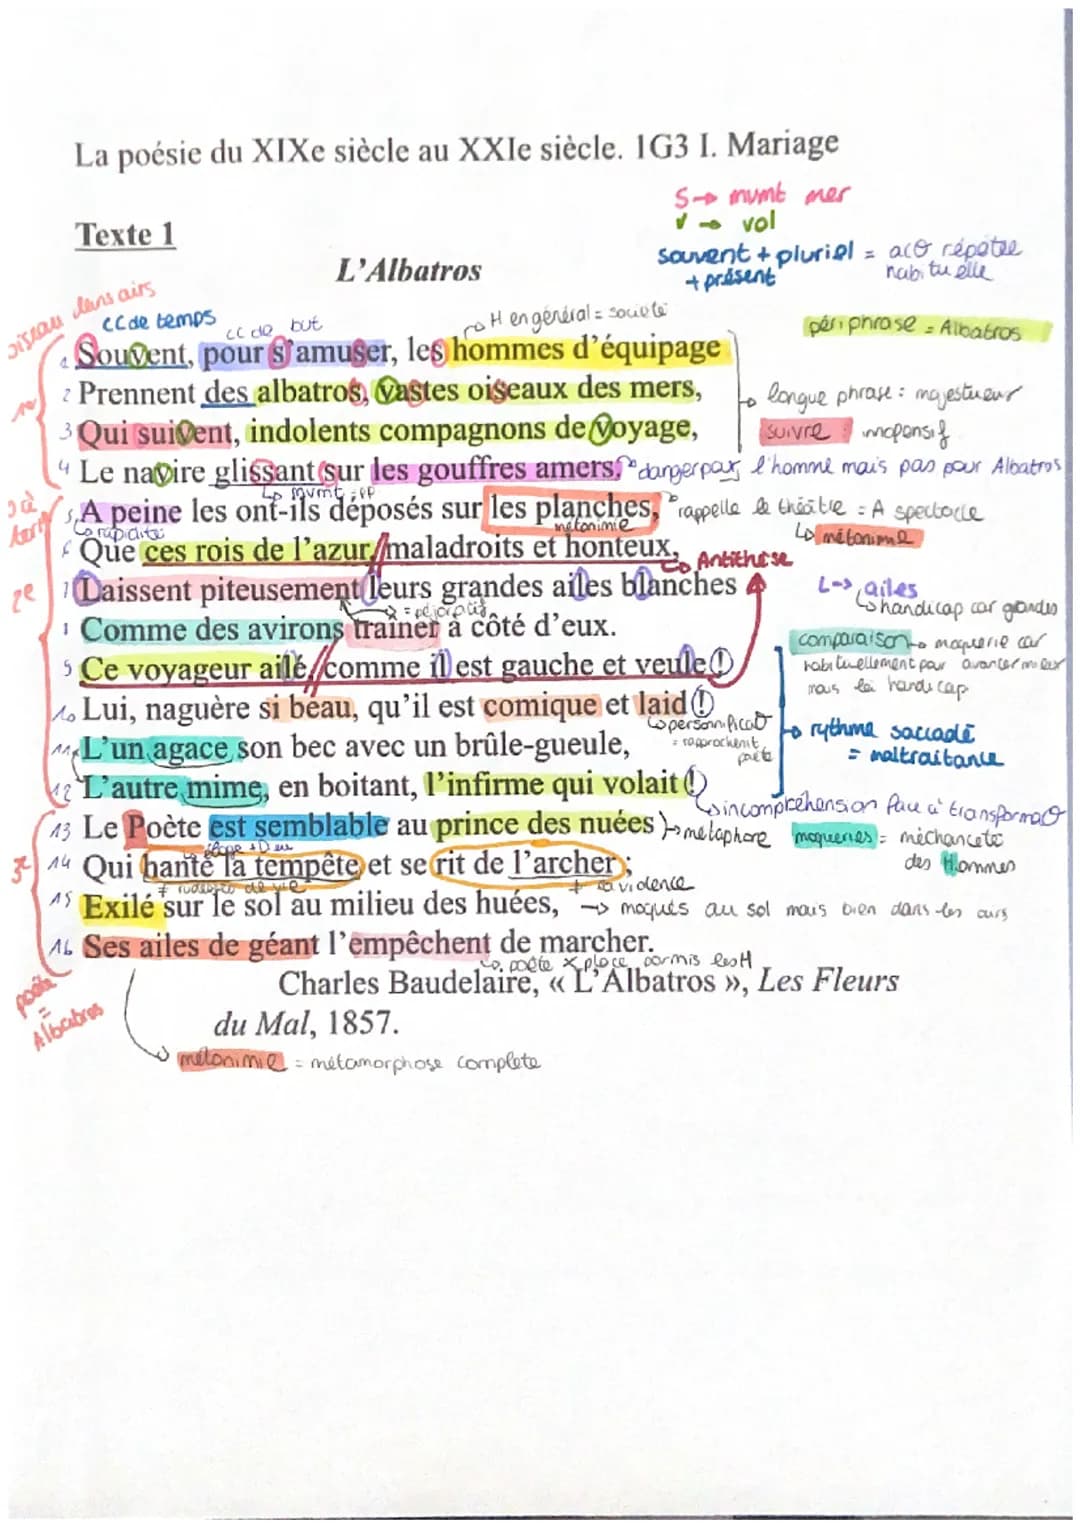 La poésie du XIXe siècle au XXIe siècle. 1G3 I. Mariage
S→ mvmt mer
v → vol
Texte 1
souvent + pluriel = acº répétée
+ présent habituelle
L'Albatros
oiseau dans airs
CC de temps
CC de but
H en général = société
périphrase = Albatros
1 Souvent, pour s'amuser, les hommes d'équipage
2 Prennent des albatros, vastes oiseaux des mers,
longue phrase : majestueux
3 Qui suivent, indolents compagnons de voyage,
suivre inofensif
4 Le navire glissant sur les gouffres amers.
danger pour l'homme mais pas pour Albatros
mvmt
5 A peine les ont-ils déposés sur les planches,
rappelle le théâtre = A spectacle
rapidité
métonimie
métonimie
6 Que ces rois de l'azur, maladroits et honteux,
Antithèse
2e
7 Laissent piteusement leurs grandes ailes blanches
L→ ailes
handicap car grandes
= péjoratif
Comme des avirons traîner à côté d'eux.
comparaison → moquerie car
habituellement pour avancer mieux
mais là handicap
9 Ce voyageur ailé, comme il est gauche et veule !
10 Lui, naguère si beau, qu'il est comique et laid !
personnificatº
= rapprochemt
poète
rythme saccadé
= maltraitance
11 L'un agace son bec avec un brûle-gueule,
12 L'autre mime, en boitant, l'infirme qui volait !
incompréhension face à transformaº
13 Le Poète est semblable au prince des nuées
métaphore
moqueries = méchanceté
des Hommes
3e
14 Qui hante la tempête et se rit de l'archer ;
+ la violence
15 Exilé sur le sol au milieu des huées,
→ moqués au sol mais bien dans les airs
16 Ses ailes de géant l'empêchent de marcher.
poète x place parmis les H
poète
=
Albatros
Charles Baudelaire, « L'Albatros », Les Fleurs
du Mal, 1857.
métonimie = métamorphose complete